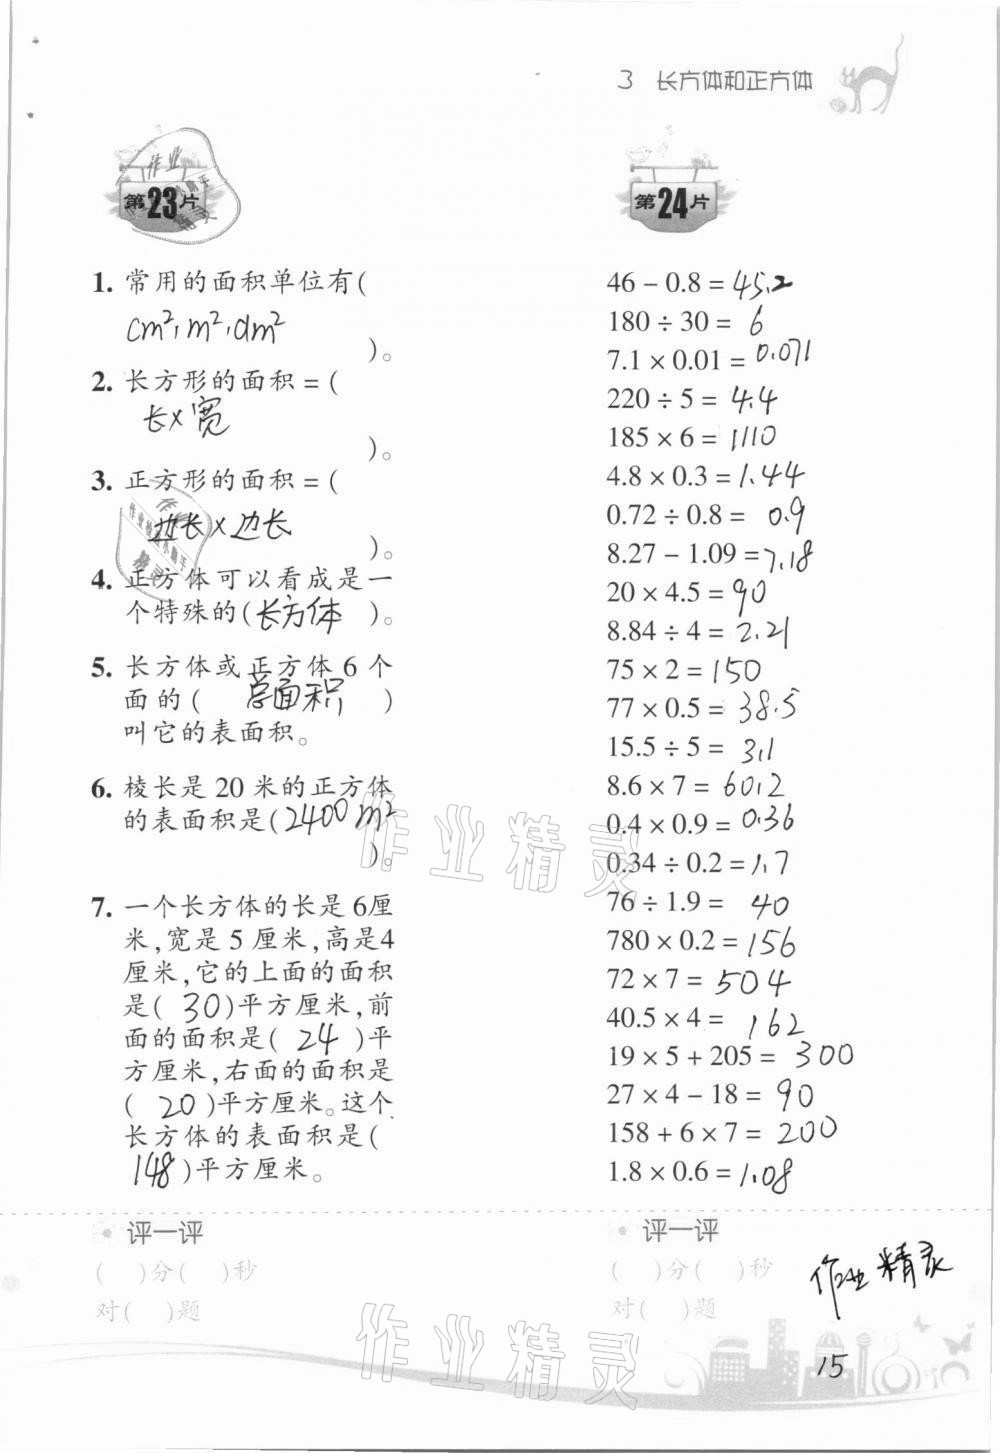 3 长方体和正方体
作业
第23片
1. 常用的面积单位有(
cm²,m²,dm²
)。
2. 长方形的面积=(
长×宽
)。
3. 正方形的面积=(
边长×边长
)。
4. 正方体可以看成是一
个特殊的(长方体 )。
5. 长方体或正方体 6 个
面的( 总面积 )
叫它的表面积。
6. 棱长是 20 米的正方体
的表面积是(2400m²
)。
7. 一个长方体的长是 6厘
米,宽是 5 厘米,高是4
厘米,它的上面的面积
是( 30 )平方厘米,前
面的面积是( 24 )平
方厘米,右面的面积是
( 20 )平方厘米。这个
长方体的表面积是(
148 )平方厘米。
评一评
( )分( )秒
对( )题
第24片
46 − 0.8 = 45.2
180 ÷ 30 = 6
7.1 × 0.01 = 0.071
220 ÷ 5 = 4.4
185 × 6 = 1110
4.8 × 0.3 = 1.44
0.72 ÷ 0.8 = 0.9
8.27 − 1.09 = 7.18
20 × 4.5 = 90
8.84 ÷ 4 = 2.21
75 × 2 = 150
77 × 0.5 = 38.5
15.5 ÷ 5 = 3.1
8.6 × 7 = 60.2
0.4 × 0.9 = 0.36
0.34 ÷ 0.2 = 1.7
76 ÷ 1.9 = 40
780 × 0.2 = 156
72 × 7 = 504
40.5 × 4 = 162
19 × 5 + 205 = 300
27 × 4 − 18 = 90
158 + 6 × 7 = 200
1.8 × 0.6 = 1.08
评一评
( )分( )秒
对( )题
作业精灵
作业精灵
作业精灵
15